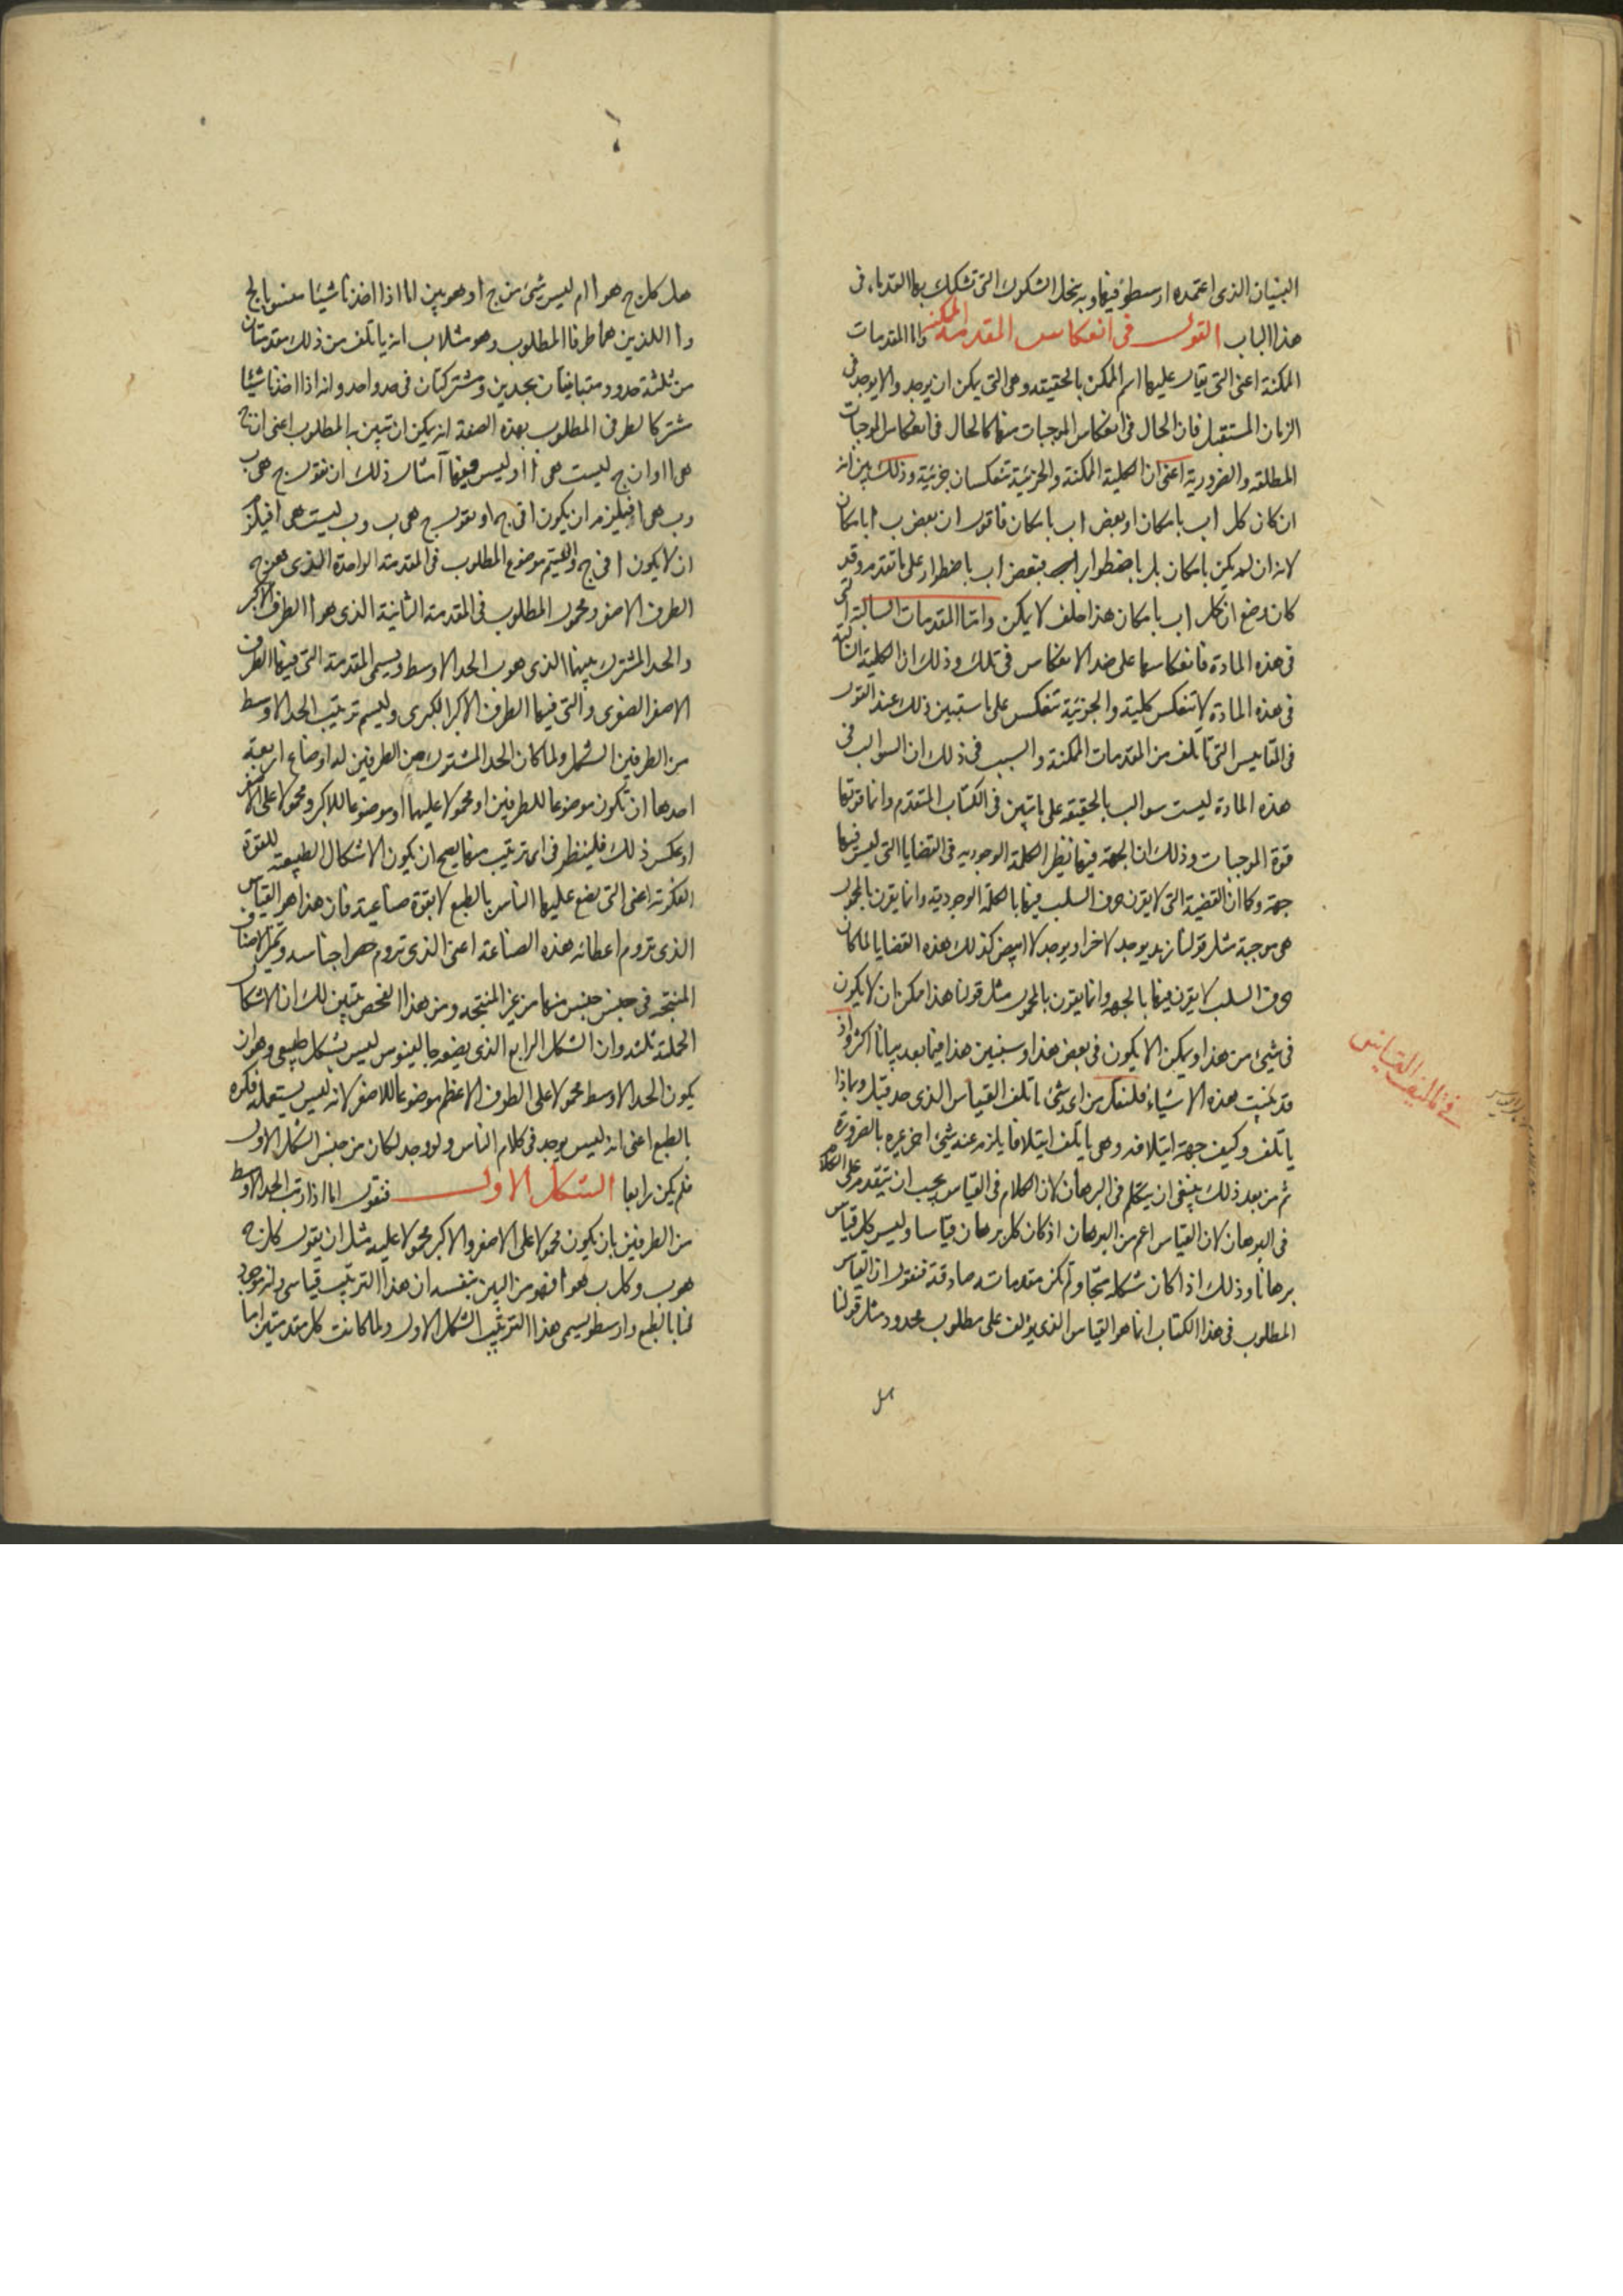 البنيان الذى اعتمده ارسطو فيها وبه ينحل الشكوك التى تشكك بها القدماء فى
هذا الباب القول فى انعكاس المقدمة الممكنة واما المقدمات
الممكنة اعنى التى يقال عليها اسم الممكن بالحقيقه وهى التى يمكن ان يوجد والا يوجد فى
الزمان المستقبل فان الحال فى انعكاس الموجبات منها كالحال فى انعكاس الموجبات
المطلقه والضرورية اعنى ان الكلية الممكنة والجزئية تنعكسان جزئية وذلك بين انه
ان كان كل ا ب بامكان او بعض ا ب بامكان فاقول ان بعض ب ا بامكان
لانه ان لم يكن بامكان بل باضطرار فبعض ا ب باضطرار على ما تقدم وقد
كان وضع ان كل ا ب بامكان هذا خلف لا يمكن واما المقدمات السالبة التى
فى هذه المادة فانعكاسها على ضد الانعكاس فى تلك وذلك ان الكلية السالبة
فى هذه المادة لا تنعكس كلية والجزئية تنعكس على ما ستبين ذلك عند القول
فى المقاييس التى تأتلف من المقدمات الممكنة والسبب فى ذلك ان السوالب فى
هذه المادة ليست سوالب بالحقيقة على ما تبين فى الكتاب المتقدم وانما قوتها
قوة الموجبات وذلك ان الجهة فيها نظير الكلمة الوجوديه فى القضايا التى ليس فيها
جهة وكما ان القضية التى لا يقرن حرف السلب فيها بالكلمة الوجودية وانما يقرن بالمحمول
هى موجبة مثل قولنا زيد يوجد لا خرا ويوجد لا ابيض كذلك هذه القضايا لما كان
حرف السلب لا يقرن فيها بالجهه وانما يقرن بالمحمول مثل قولنا هذا ممكن ان لا يكون
فى شىء من هذا ويمكن الا يكون فى بعض هذا وسنبين هذا فيما بعد بيانا اكثر واذ
قد تبينت هذه الاشياء فلنفكر من اى شىء ياتلف القياس الذى حد قبل وبماذا
ياتلف وكيف جهة ايتلافه وهى ما يأتلف ايتلافا يلزم عنه شىء اخر غيره بالضرورة
ثم من بعد ذلك ينبغى ان يتكلم فى البرهان لان الكلام فى القياس يجب ان يتقدم على الكلام
فى البرهان لان القياس اعم من البرهان اذ كان كل برهان قياسا وليس كل قياس
برهانا وذلك اذا كان شكله منتجا ولم تكن مقدماته صادقة فنقول ان القياس
المطلوب فى هذا الكتاب انما هو القياس الذى يؤلف على مطلوب محدود مثل قولنا
هل
فى تاليف القياس
هل كل ج هو ا ام ليس شىء من ج ا وهو بين انا اذا اخذنا شيئا منسوبا لج
وا اللذين هما طرفا المطلوب وهو مثلا ب انه ياتلف من ذلك مقدمتان
من ثلثة حدود متباينتان بحدين ومشتركتان فى حد واحد وانه اذا اخذنا شيئا
مشتركا لطرفى المطلوب بهذه الصفة انه يمكن ان تبين به المطلوب اعنى ان ج
هى ا او ان ج ليست هى ا او ليس فيها ا مثال ذلك ان نقول ج هى ب
وب هى ا فيلزم ان يكون ا فى ج او نقول ج هى ب وب ليست هى ا فيلزم
ان لا يكون ا فى ج وليسم موضوع المطلوب فى المقدمة الواحدة الذى هو ج
الطرف الاصغر ومحمول المطلوب فى المقدمة الثانية الذى هو ا الطرف الاكبر
والحد المشترك بينهما الذى هو ب الحد الاوسط ويسمى المقدمة التى فيها الطرف
الاصغر الصغرى والتى فيها الطرف الاكبر الكبرى وليسم ترتيب الحد الاوسط
من الطرفين الشكل ولما كان الحد المشترك من الطرفين له اوضاع اربعة
احدها ان تكون موضوعا للطرفين او محمولا عليهما او موضوعا للاكبر ومحمولا على الاصغر
او عكس ذلك فلينظر فى اى ترتيب منها يصح ان يكون الاشكال الطبيعية للقوة
الفكرية اعنى التى يضع عليها الناس بالطبع لا بقوة صناعية فان هذا هو القياس
الذى تروم اعطائه هذه الصناعة اعنى الذى تروم حصر اجناسه وتميز الاصناف
المنتجة فى جنس جنس منها من غير المنتجه ومن هذا الفحص يتبين لك ان الاشكال
الحملية ثلثه وان الشكل الرابع الذى يضعه جالينوس ليس بشكل طبيعى وهو ان
يكون الحد الاوسط محمولا على الطرف الاعظم موضوعا للاصغر لانه ليس يستعمله فكره
بالطبع اعنى انه ليس يوجد فى كلام الناس ولو وجد لكان من جنس الشكل الاول
فلم يكن رابعا الشكل الاول فنقول اما اذا رتب الحد الاوسط
من الطرفين بان يكون محمولا على الاصغر والاكبر محمولا عليه مثل ان يقول كل ج
هو ب وكل ب هو ا فهو من البين بنفسه ان هذا الترتيب قياسى وانه موجود
لنا بالطبع وارسطو يسمى هذا الترتيب الشكل الاول ولما كانت كل مقدمتين اما